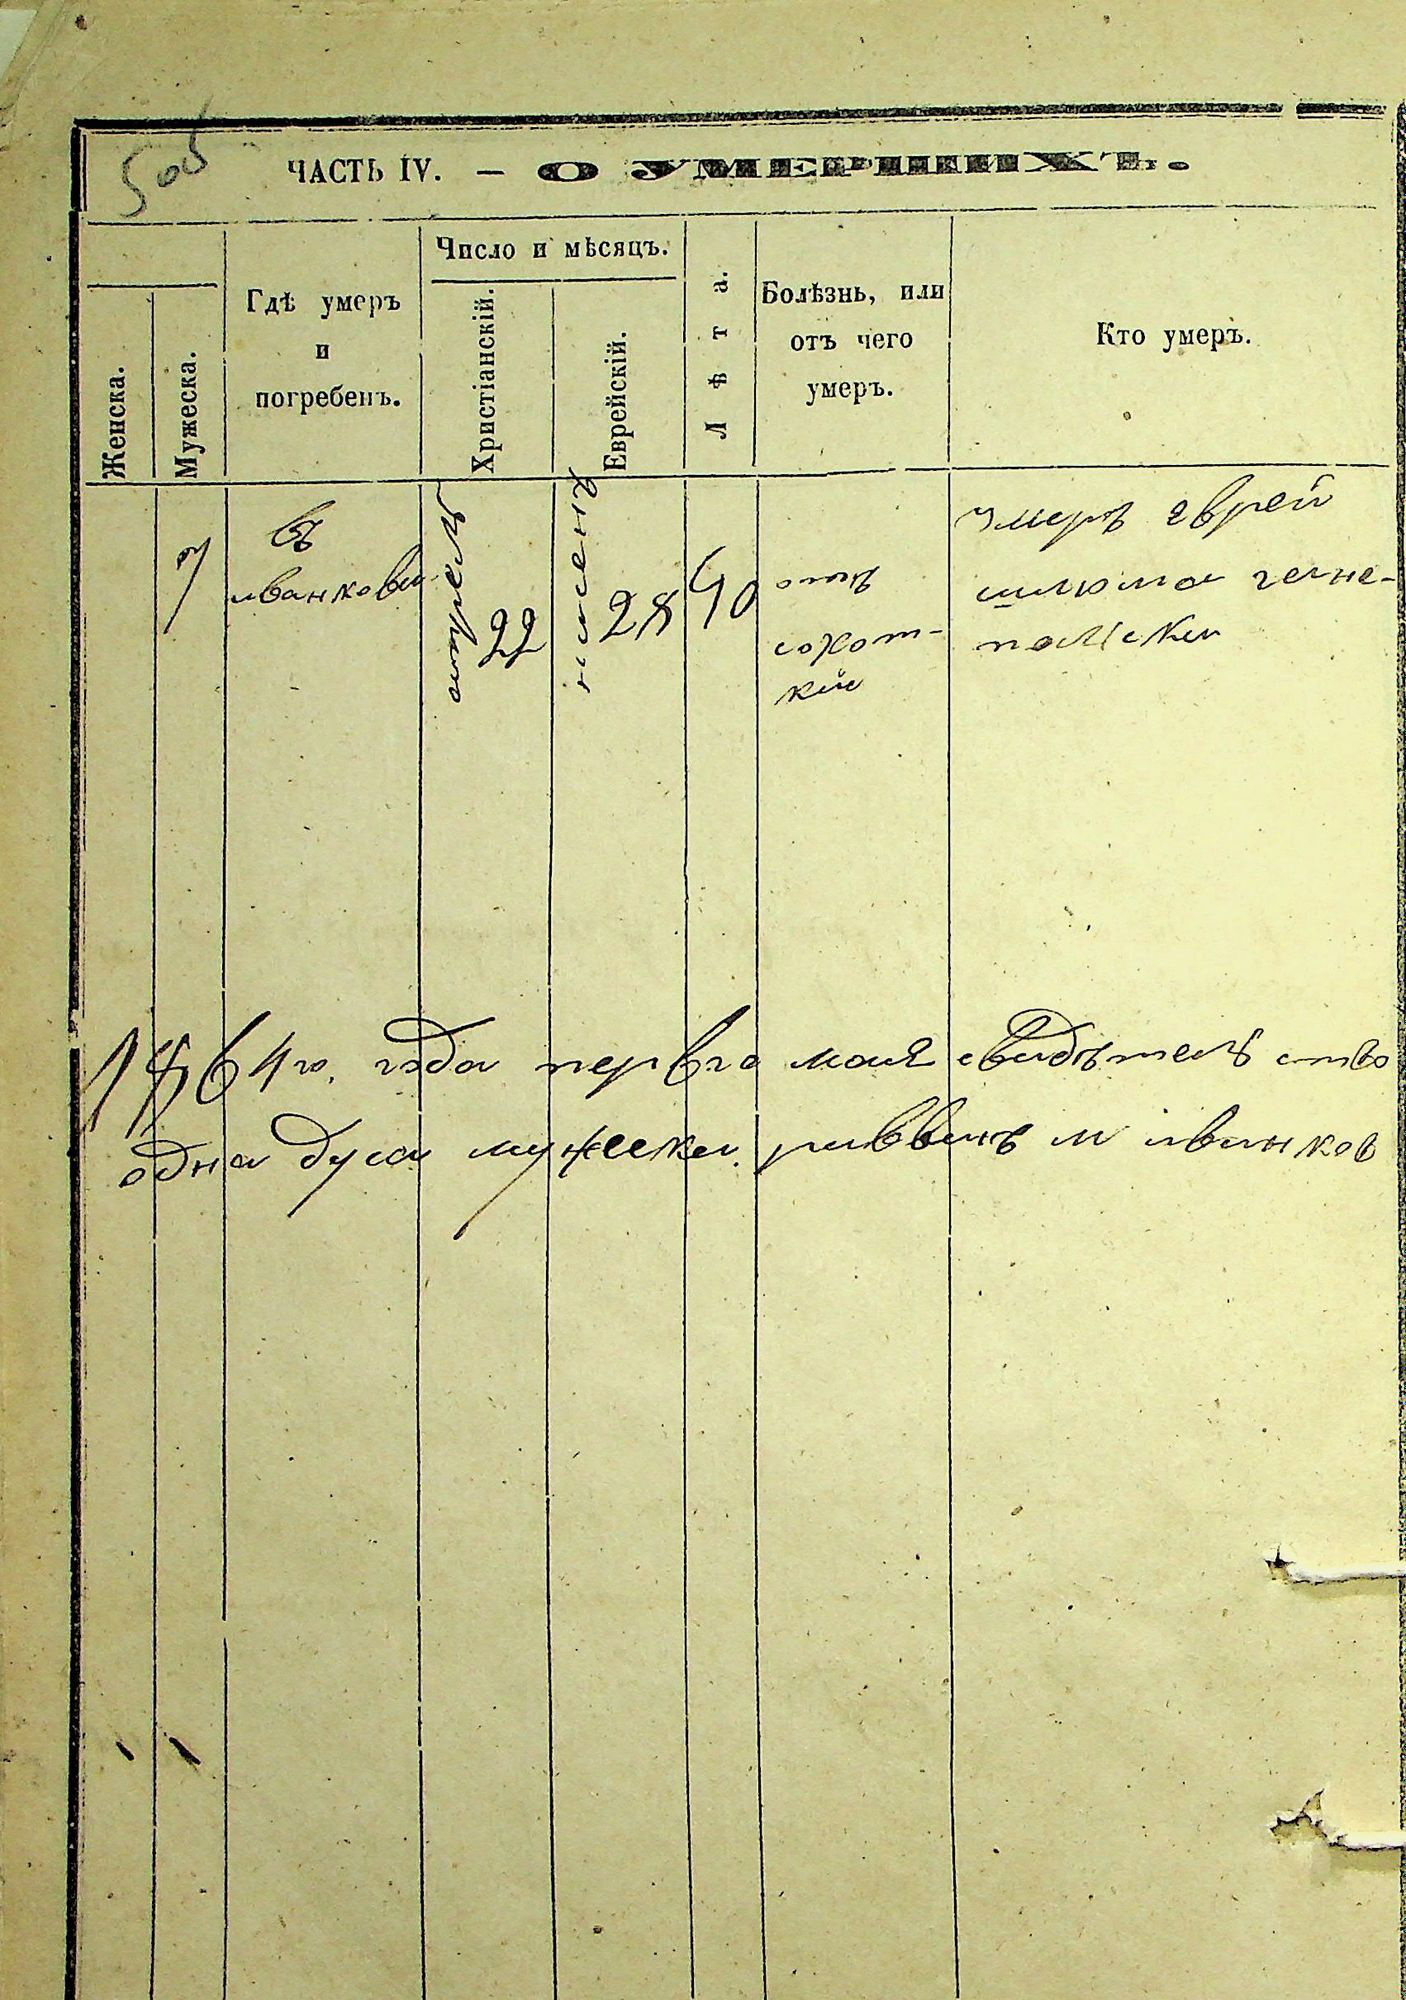 505
ЧАСТЬ IV. — О УМЕРШИХЪ.
Женска.
Мужеска.
Гдѣ умеръ
и
погребенъ.
Число и мѣсяцъ.
Христіанскій.
Еврейскій.
Лѣта.
Болѣзнь, или
отъ чего
умеръ.
Кто умеръ.
въ
иванкови
апрель
22
нисенъ
28
40
отъ
сохот-
кии
умеръ еврей
шлюма
полскеи
1864го. года перваго мая свидѣтелство
одна душа мужеска. раввинъ м иванков